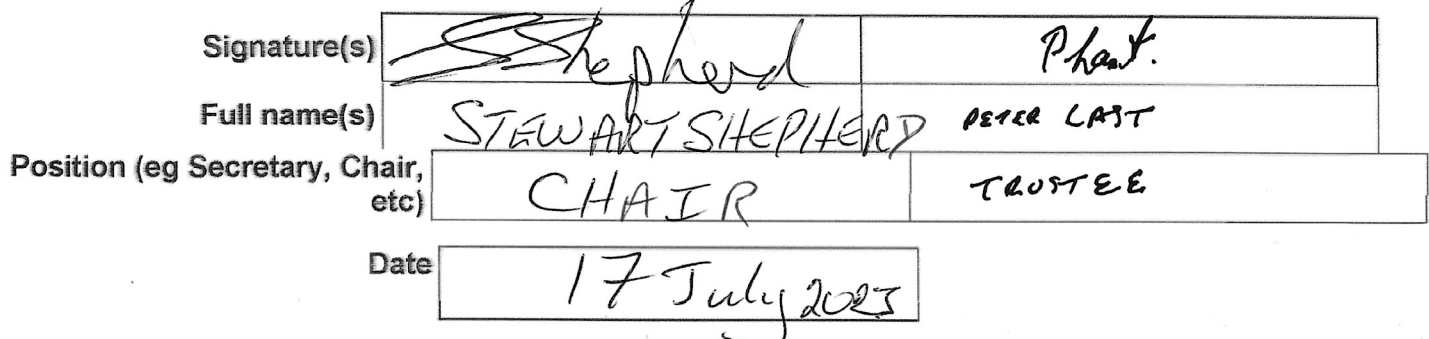 Signature(s) SShepherd PLast.
Full name(s) STEWART SHEPHERD PETER LAST
Position (eg Secretary, Chair, etc) CHAIR TRUSTEE
Date 17 July 2023